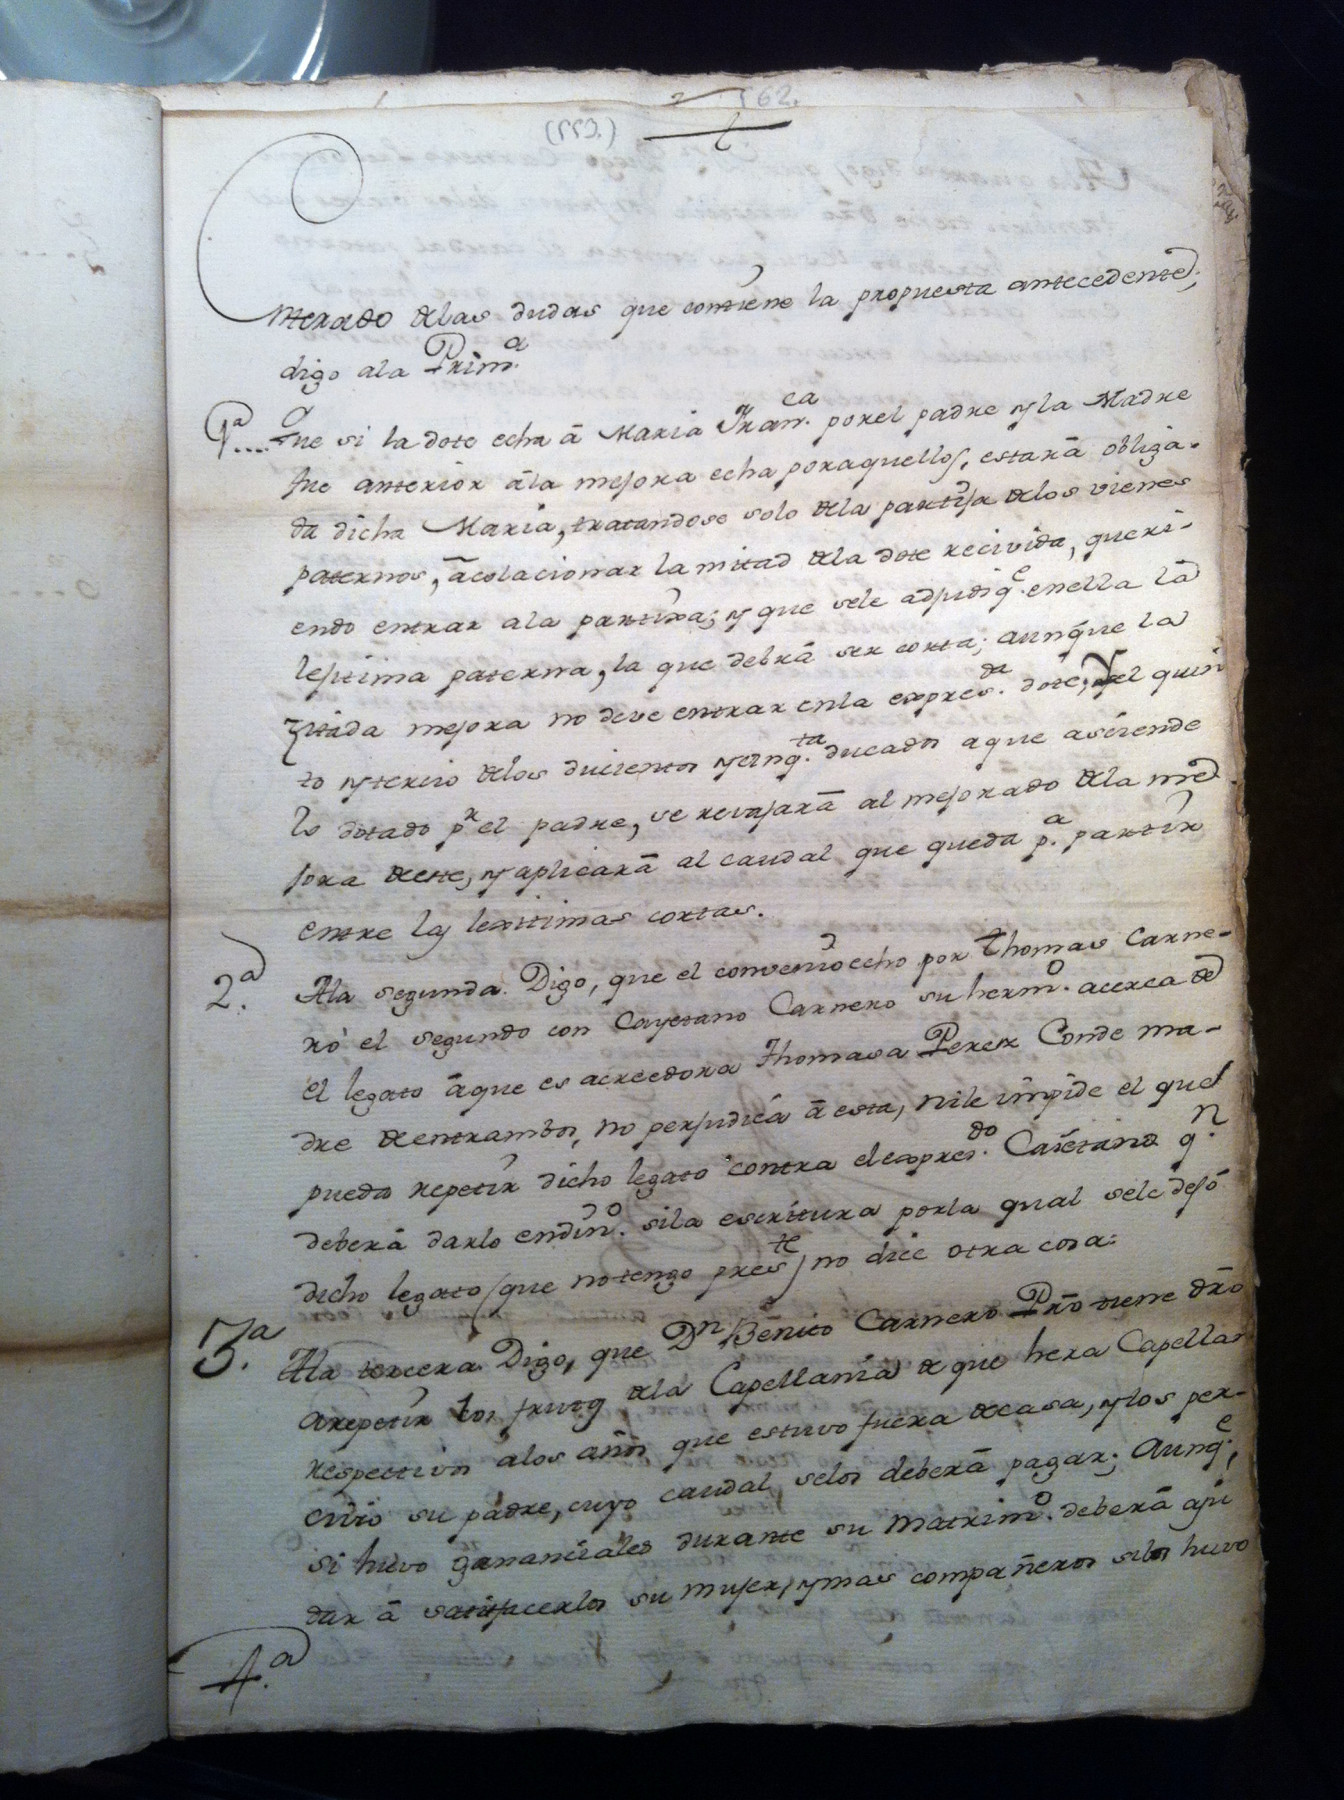 162.
(553.)
Enterado de las dudas que contiene la propuesta antecedente;
digo ala Prim.ª
1ª.... Que si la dote echa â Maria Fran.ca porel padre y la Madre
fue anterior âla mejora echa poraquellos, estarâ obliga-
da dicha Maria, tratandose solo dela partija delos vienes
paternos, âcolacionar la mitad dela dote recivida, queri-
endo entrar ala partija; y que sele adjudiq.e enella la
lejitima paterna, la que debrâ ser corta; aunque la
zitada mejora no deve entrar enla expres.da dote, y el quin
to y tercio delosducientos y cinq.ta ducados aque asciende
lo dotado pr el padre, se revajarâ al mejorado dela me
jora deeste, y aplicarâ al caudal que queda p.a partir
entre las lexitimas cortas.
2.a Ala segunda. Digo, que el convenio echo por Thomas Carne-
ro el segundo con Cayetano Carnero su herm.o acerca de
el legato âque es acreedora Thomasa Perez Conde ma-
dre de entrambos, no perjudica â esta, nile impide el que
pueda repetir dicho legato contra elexpres.do Caietano q.n
deberâ darlo endin.o sila escritura porla qual sele dejó
dicho legato (que notengo pres.te) no dice otra cosa.
3.a Ala tercera Digo, que Dn Benito Carnero Pro tiene dro
arepetir los frutos dela Capellania de que hera Capellan
respectivos alos años que estuvo fuera decasa, y los per-
civio su padre, cuyo caudal selos deberâ pagar; aunq.e,
si huvo gananciales durante su matrim.o deberâ aju
dar â satisfacerlos su mujer, y mas compañeros silos huvo
4.a